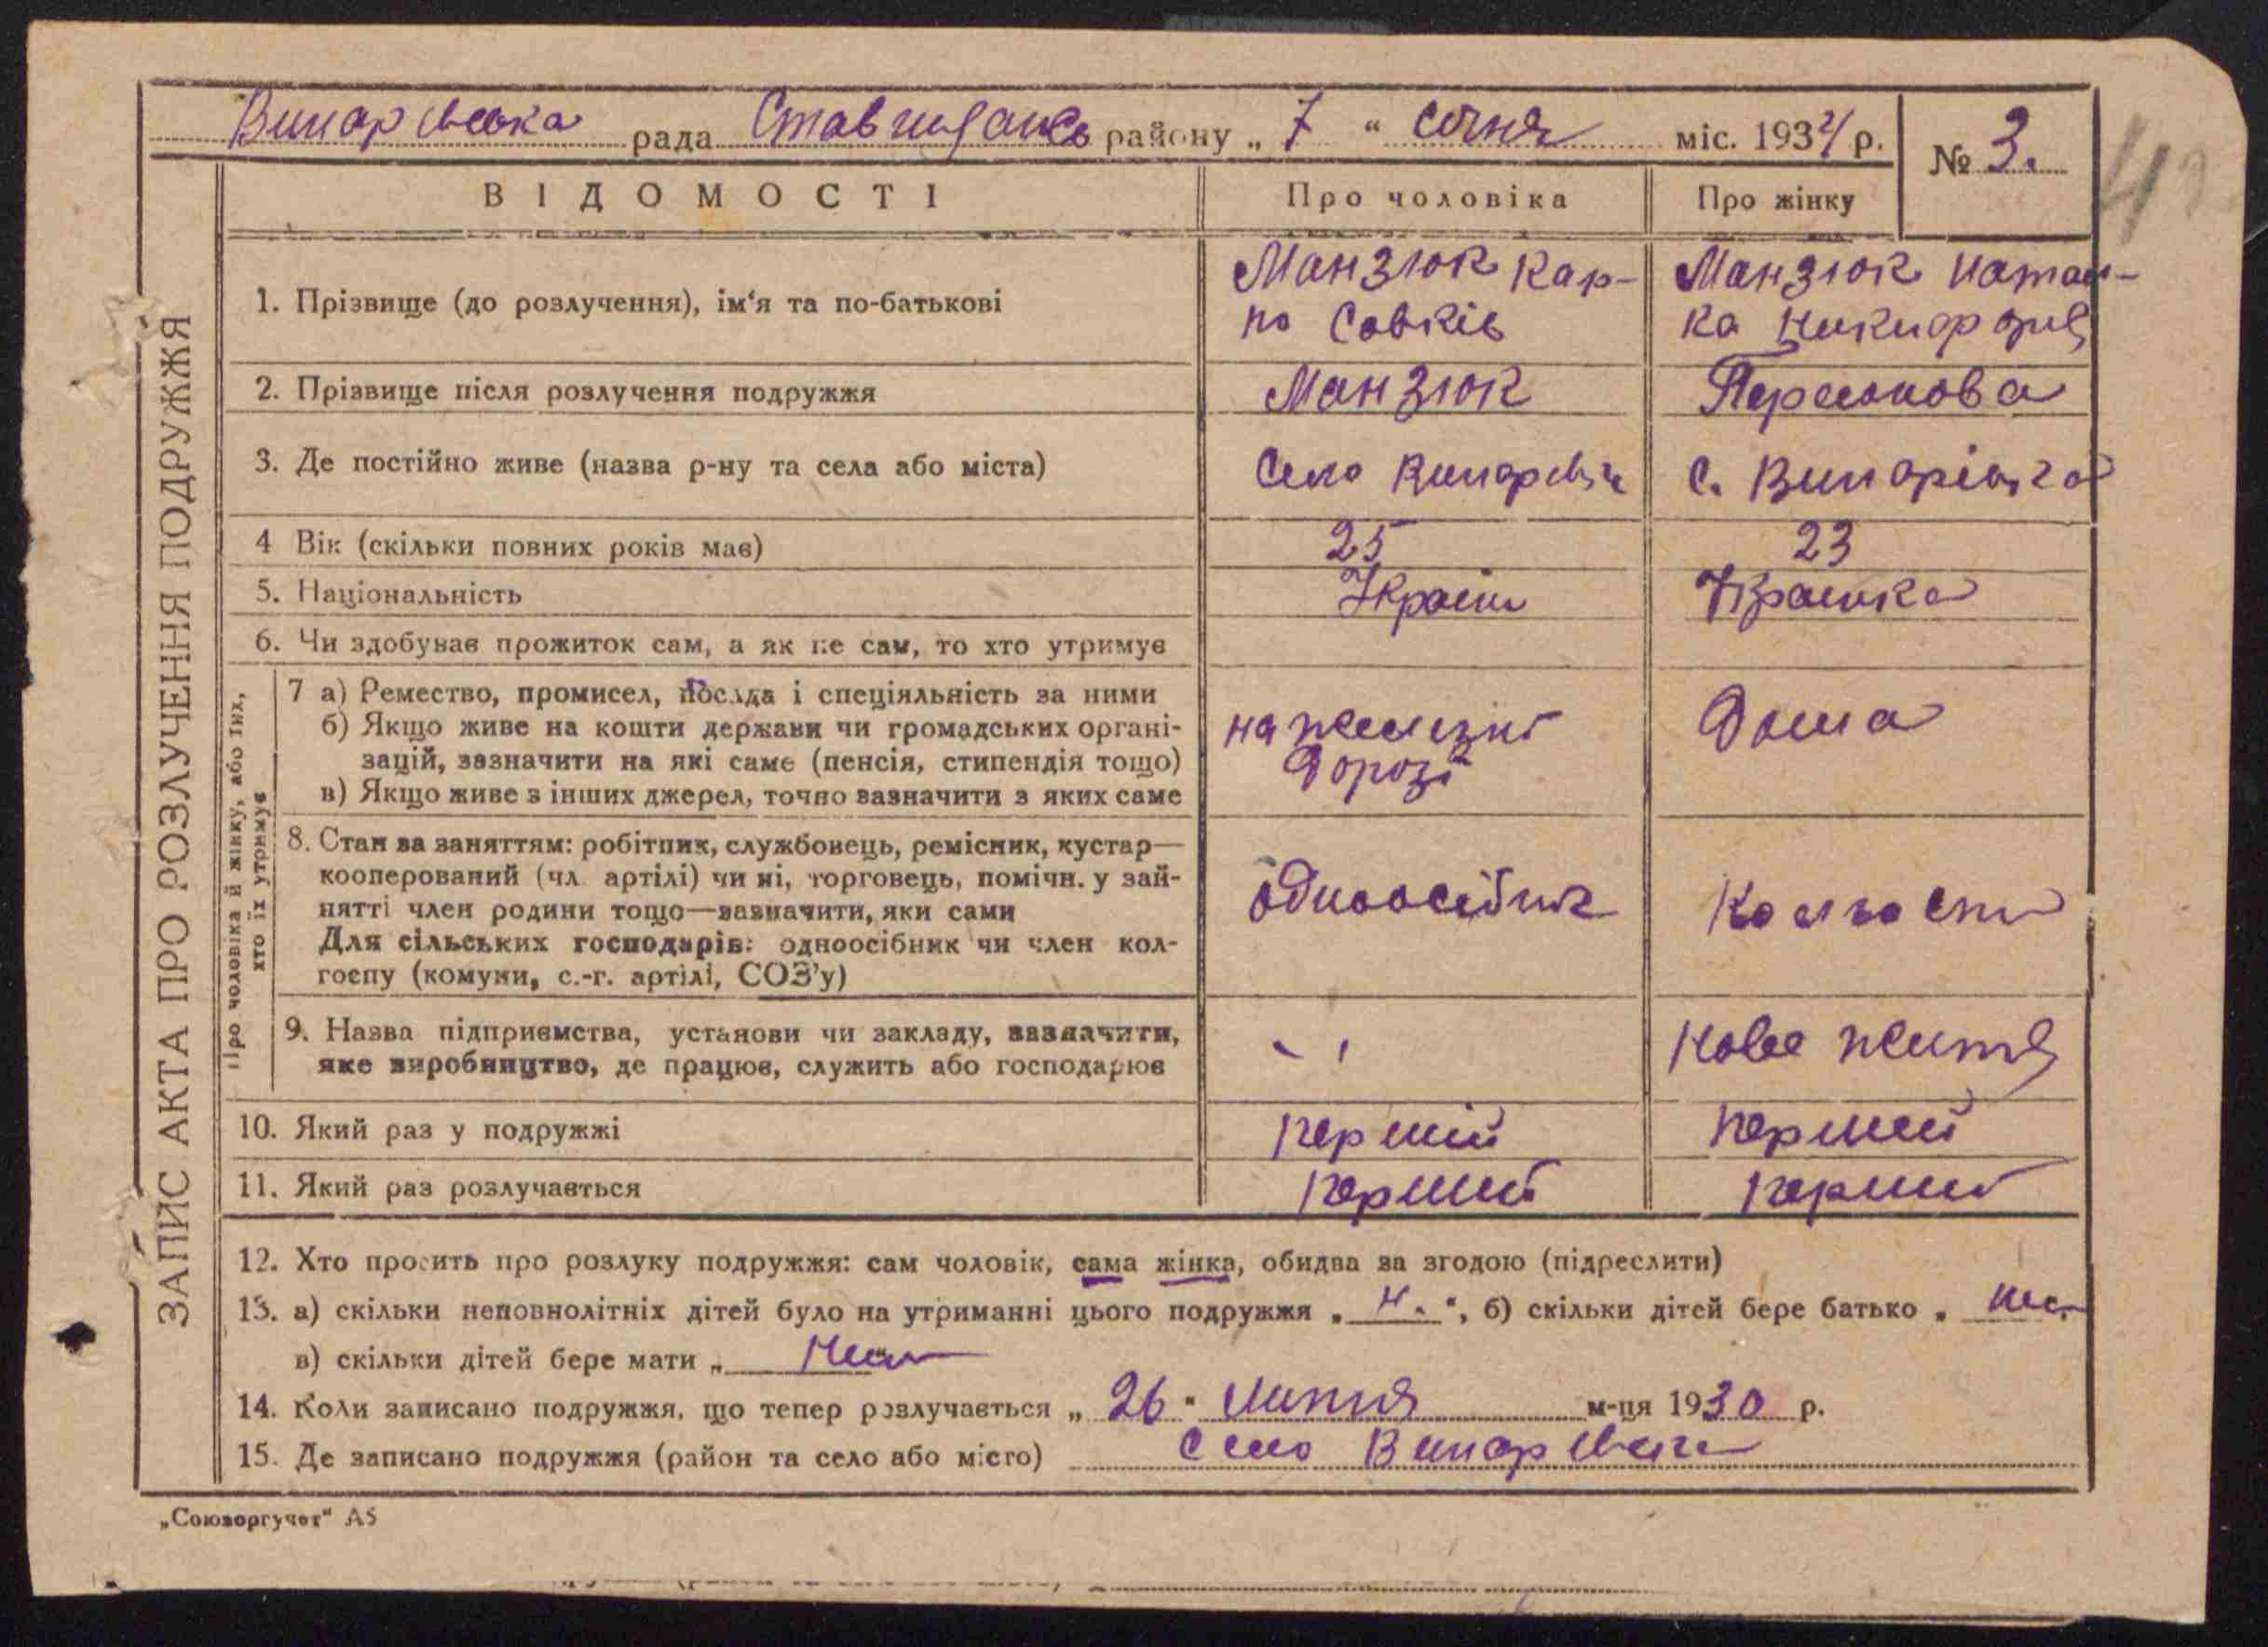 Винарівська рада Ставищансь району „ 7 “ січня міс. 1934 р.
№ 3.
ВІДОМОСТІ Про чоловіка Про жінку
ЗАПИС АКТА ПРО РОЗЛУЧЕННЯ ПОДРУЖЖЯ
1. Прізвище (до розлучення), ім‘я та по-батькові
Манзюк Кар-
по Савків
Манзюк Натал-
ка Никифорів
2. Прізвище після розлучення подружжя Манзюк
3. Де постійно живе (назва р-ну та села або міста) Село с.
4 Вік (скільки повних років має) 25 23
5. Національність Україн Українка
6. Чи здобуває прожиток сам, а як не сам, то хто утримує
Про чоловіка й жінку, або тих,
хто їх утримує
7 а) Ремество, промисел, посада і спеціяльність за ними
б) Якщо живе на кошти держави чи громадських органі-
зацій, зазначити на які саме (пенсія, стипендія тощо)
в) Якщо живе з інших джерел, точно зазначити з яких саме
на железні
дорозі
Дома
8. Стан за заняттям: робітник, службовець, ремісник, кустар—
кооперований (чл. артілі) чи ні, торговець, помічн. у зай-
нятті член родини тощо—зазначити, яки сами
Для сільських господарів: одноосібник чи член кол-
госпу (комуни, с.-г. артілі, СОЗ’у)
одноосібник
9. Назва підприємства, установи чи закладу, зазначити,
яке виробництво, де працює, служить або господарює
Нове життя
10. Який раз у подружжі перший перший
11. Який раз розлучається перший перший
12. Хто просить про розлуку подружжя: сам чоловік, сама жінка, обидва за згодою (підреслити)
13. а) скільки неповнолітніх дітей було на утриманні цього подружжя „ Н. “, б) скільки дітей бере батько „
в) скільки дітей бере мати „
14. Коли записано подружжя, що тепер розлучається „ 26 “ липня м-ця 1930 р.
15. Де записано подружжя (район та село або місто) Село
„Союзоргучет“ А5